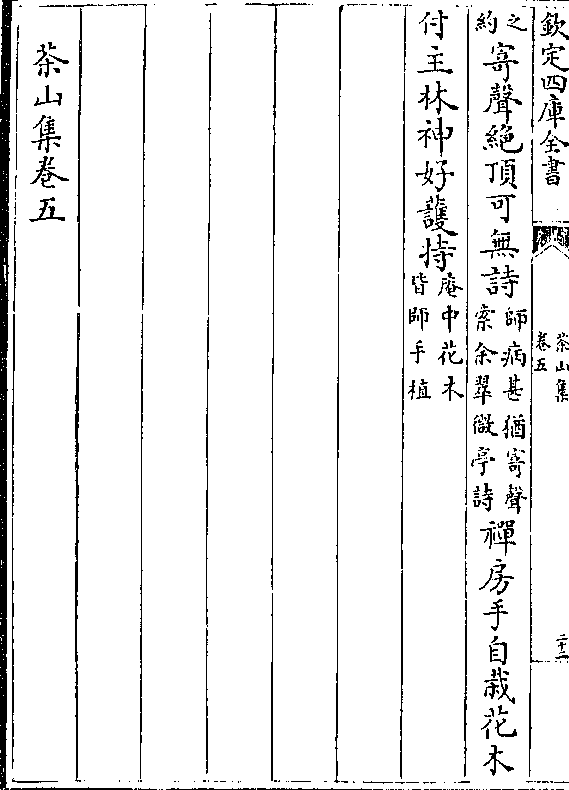 欽定四庫全書
茶山集
卷五
二十二
之
約
寄聲絶頂可無詩
師病甚猶寄聲
索余翠微亭詩
禪房手自栽花木
付主林神好護持
庵中花木
皆師手植
茶山集卷五